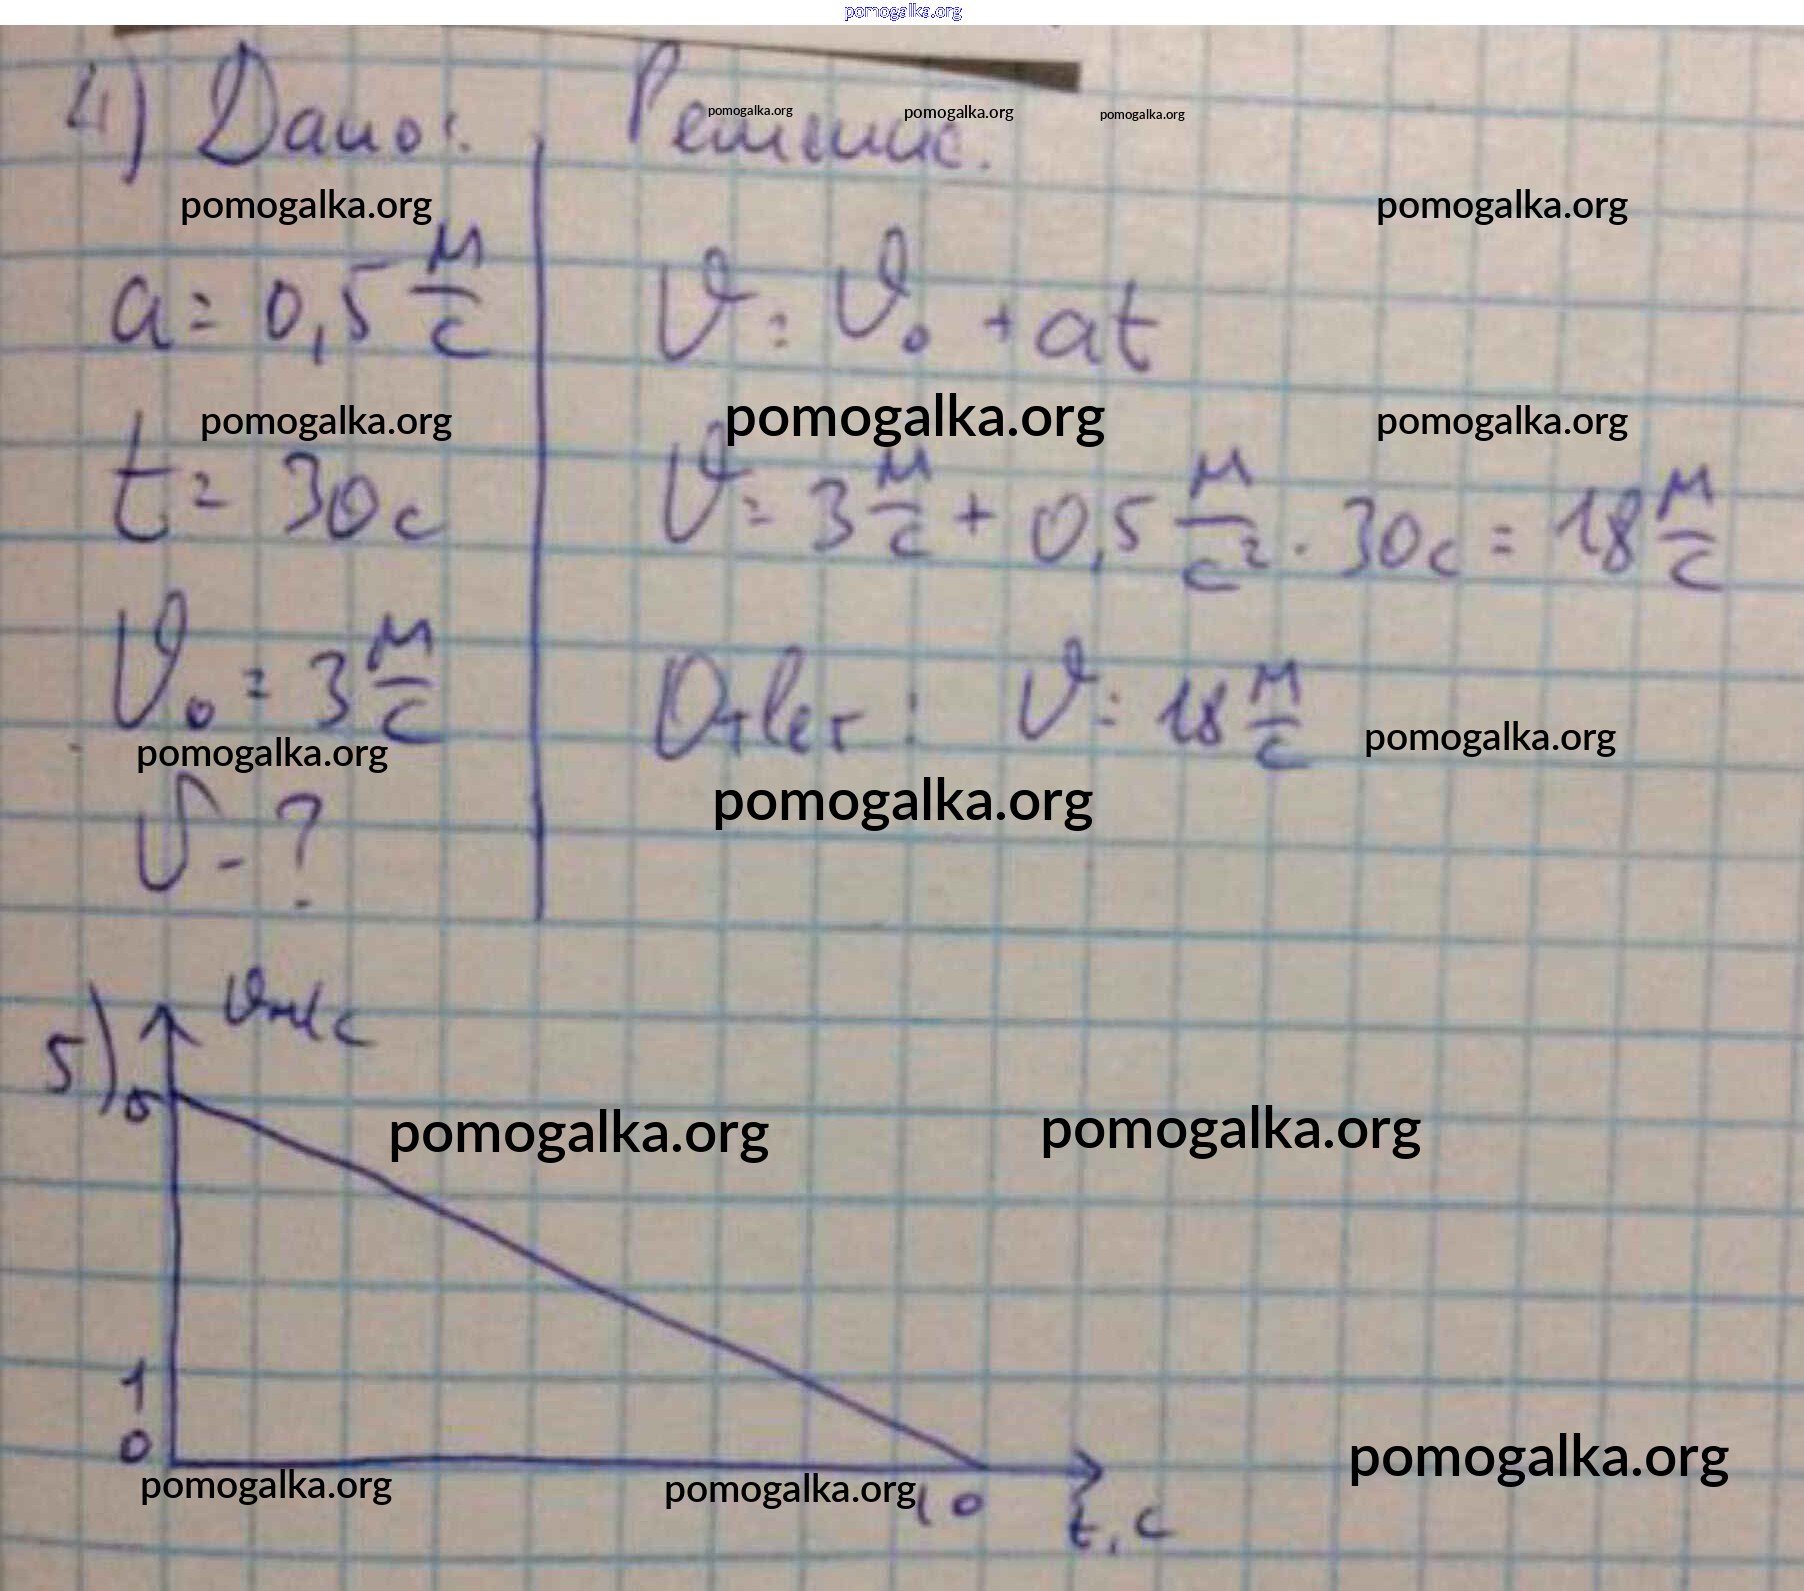 pomogalka.org
4) Дано: Решение.
pomogalka.org pomogalka.org pomogalka.org
pomogalka.org pomogalka.org
a = 0,5 м/с
υ = υ₀ + at
pomogalka.org pomogalka.org pomogalka.org
t = 30 с
υ = 3 м/с + 0,5 м/с² · 30 с = 18 м/с
υ₀ = 3 м/с
Ответ: υ = 18 м/с
pomogalka.org pomogalka.org
pomogalka.org
υ - ?
5) υ м/с
pomogalka.org pomogalka.org
1
0
pomogalka.org
pomogalka.org pomogalka.org
10
t, с